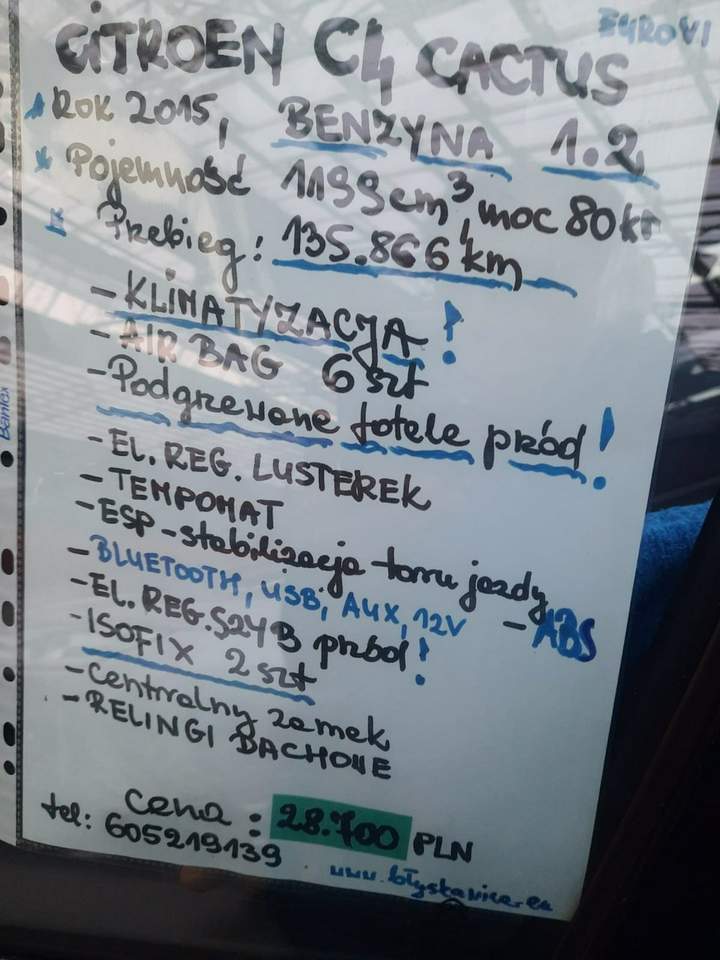 EURO VI
CITROEN C4 CACTUS
Rok 2015, BENZYNA 1.2
Pojemność 1199cm³, moc 80kr
Przebieg: 135.866 km
- KLIMATYZACJA!
- AIR BAG 6 szt
- Podgrzewane fotele przód!
- EL. REG. LUSTEREK
- TEMPOMAT
- ESP - stabilizacja toru jazdy
- BLUETOOTH, USB, AUX, 12V - ABS
- EL. REG. SZYB przód!
- ISOFIX 2 szt
- Centralny zamek
- RELINGI DACHOWE
cena: 28.700 PLN
tel: 605219139
www.blyskavica.eu
Bantex